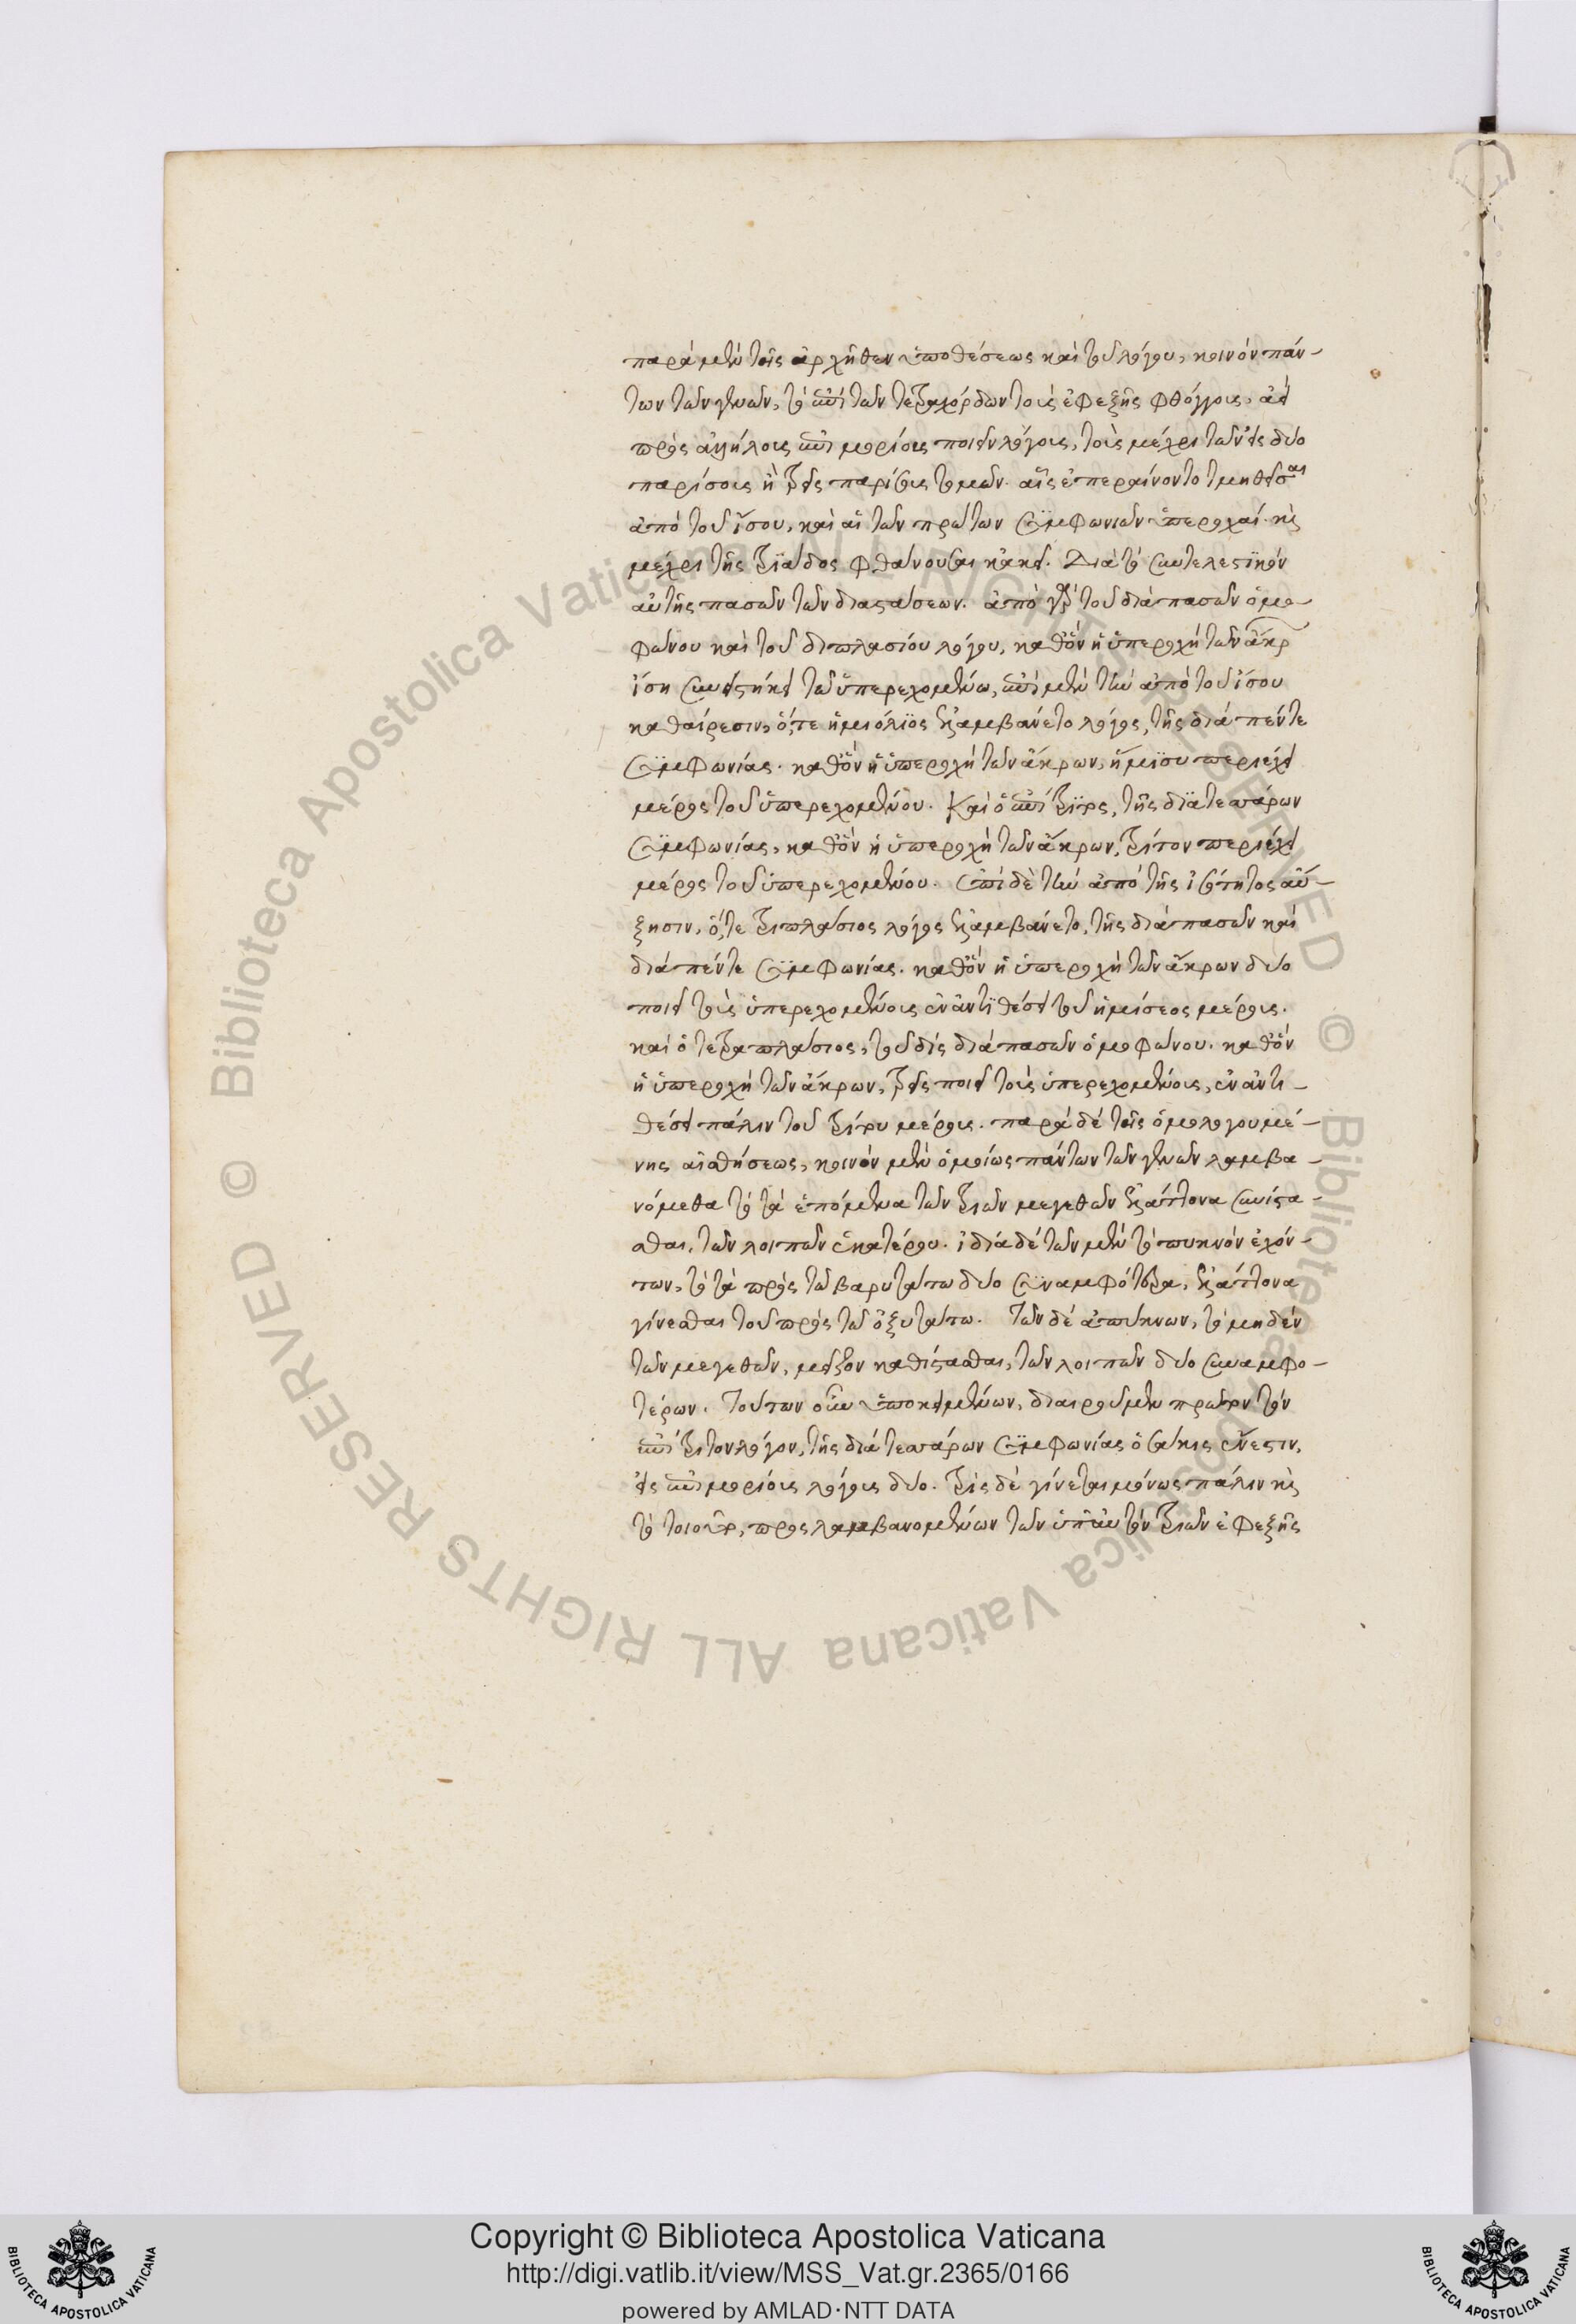 παρὰ μὲν τῆς ἀρχῆθεν ὑποθέσεως καὶ τοῦ λόγου, κοινὸν πάν-
των τῶν γενῶν, τὸ ἐπὶ τῶν τετραχόρδων τοὺς ἐφεξῆς φθόγγους, ἀεὶ
πρὸς ἀλλήλους ἐπιμορίους ποιεῖν λόγους, τοὺς μέχρι τῶν εἰς δύο
παρίσους ἢ τρεῖς παρίσους τομῶν. αἷς ἐπεραίνοντο τμηθεῖσαι
ἀπὸ τοῦ ἴσου, καὶ αἱ τῶν πρώτων συμφωνιῶν ὑπεροχαί. καὶ
μέχρι τῆς τριάδος φθάνουσαι κἀκεῖ. Διὰ τὸ συντελεστικὸν
αὐτῆς πασῶν τῶν διαστάσεων. ἀπὸ γὰρ τοῦ διὰ πασῶν ὁμο-
φώνου καὶ τοῦ διπλασίου λόγου, καθ' ὃν ἡ ὑπεροχὴ τῶν ἄκρων
ἴση συνεστήκει τῷ ὑπερεχομένῳ, ἐπὶ μὲν τὴν ἀπὸ τοῦ ἴσου
καθαίρεσιν, ὅ, τε ἡμιόλιος ἐλαμβάνετο λόγος, τῆς διὰ πέντε
συμφωνίας. καθ' ὃν ἡ ὑπεροχὴ τῶν ἄκρων, ἥμισυ περιέχει
μέρος τοῦ ὑπερεχομένου. Καὶ ὁ ἐπίτριτος, τῆς διὰ τεσσάρων
συμφωνίας, καθ' ὃν ἡ ὑπεροχὴ τῶν ἄκρων, τρίτον περιέχει
μέρος τοῦ ὑπερεχομένου. ἐπὶ δὲ τὴν ἀπὸ τῆς ἰσότητος αὔ-
ξησιν, ὅ, τε τριπλάσιος λόγος ἐλαμβάνετο, τῆς διὰ πασῶν καὶ
διὰ πέντε συμφωνίας. καθ' ὃν ἡ ὑπεροχὴ τῶν ἄκρων δύο
ποιεῖ τοὺς ὑπερεχομένους ἐν ἀντιθέσει τοῦ ἡμίσεος μέρους.
καὶ ὁ τετραπλάσιος, τοῦ δὶς διὰ πασῶν ὁμοφώνου. καθ' ὃν
ἡ ὑπεροχὴ τῶν ἄκρων, τρεῖς ποιεῖ τοὺς ὑπερεχομένους, ἐν ἀντι-
θέσει πάλιν τοῦ τρίτου μέρους. παρὰ δὲ τῆς ὁμολογουμέ-
νης αἰσθήσεως, κοινὸν μὲν ὁμοίως πάντων τῶν γενῶν λαμβα-
νόμεθα τὸ τὰ ἑπόμενα τῶν τριῶν μεγεθῶν ἐλάττονα συνίστα-
σθαι, τῶν λοιπῶν ἑκατέρου. ἰδίᾳ δὲ τῶν μὲν τὸ πυκνὸν ἐχόν-
των, τὸ τὰ πρὸς τῷ βαρυτάτῳ δύο συναμφότερα, ἐλάττονα
γίνεσθαι τοῦ πρὸς τῷ ὀξυτάτῳ. Τῶν δὲ ἀπύκνων, τὸ μηδὲν
τῶν μεγεθῶν, μεῖζον καθίστασθαι, τῶν λοιπῶν δύο συναμφο-
τέρων. Τούτων οὖν ὑποκειμένων, διαιροῦμεν πρῶτον τὸν
ἐπίτριτον λόγον, τῆς διὰ τεσσάρων συμφωνίας ὁσάκις ἔνεστιν,
εἰς ἐπιμορίους λόγους δύο. τρὶς δὲ γίνεται μόνως πάλιν καὶ
τὸ τοιοῦτο, προσλαμβανομένων τῶν ὑπ' αὐτὸν τριῶν ἐφεξῆς
Copyright © Biblioteca Apostolica Vaticana
http://digi.vatlib.it/view/MSS_Vat.gr.2365/0166
powered by AMLAD·NTT DATA